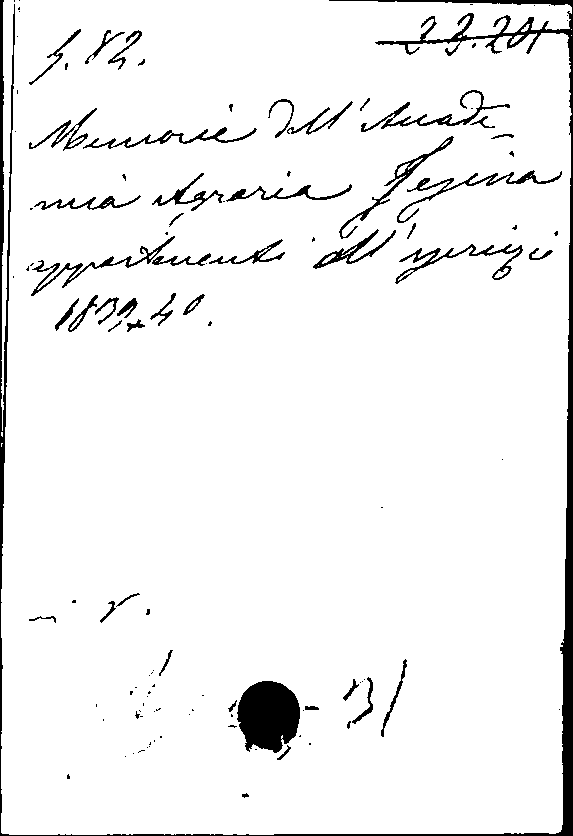 5.82. 3.3.201
Memorie dell'Accade
mia Agraria Jesina
appartenenti all'esercizi
1839-40.
r.
- 31